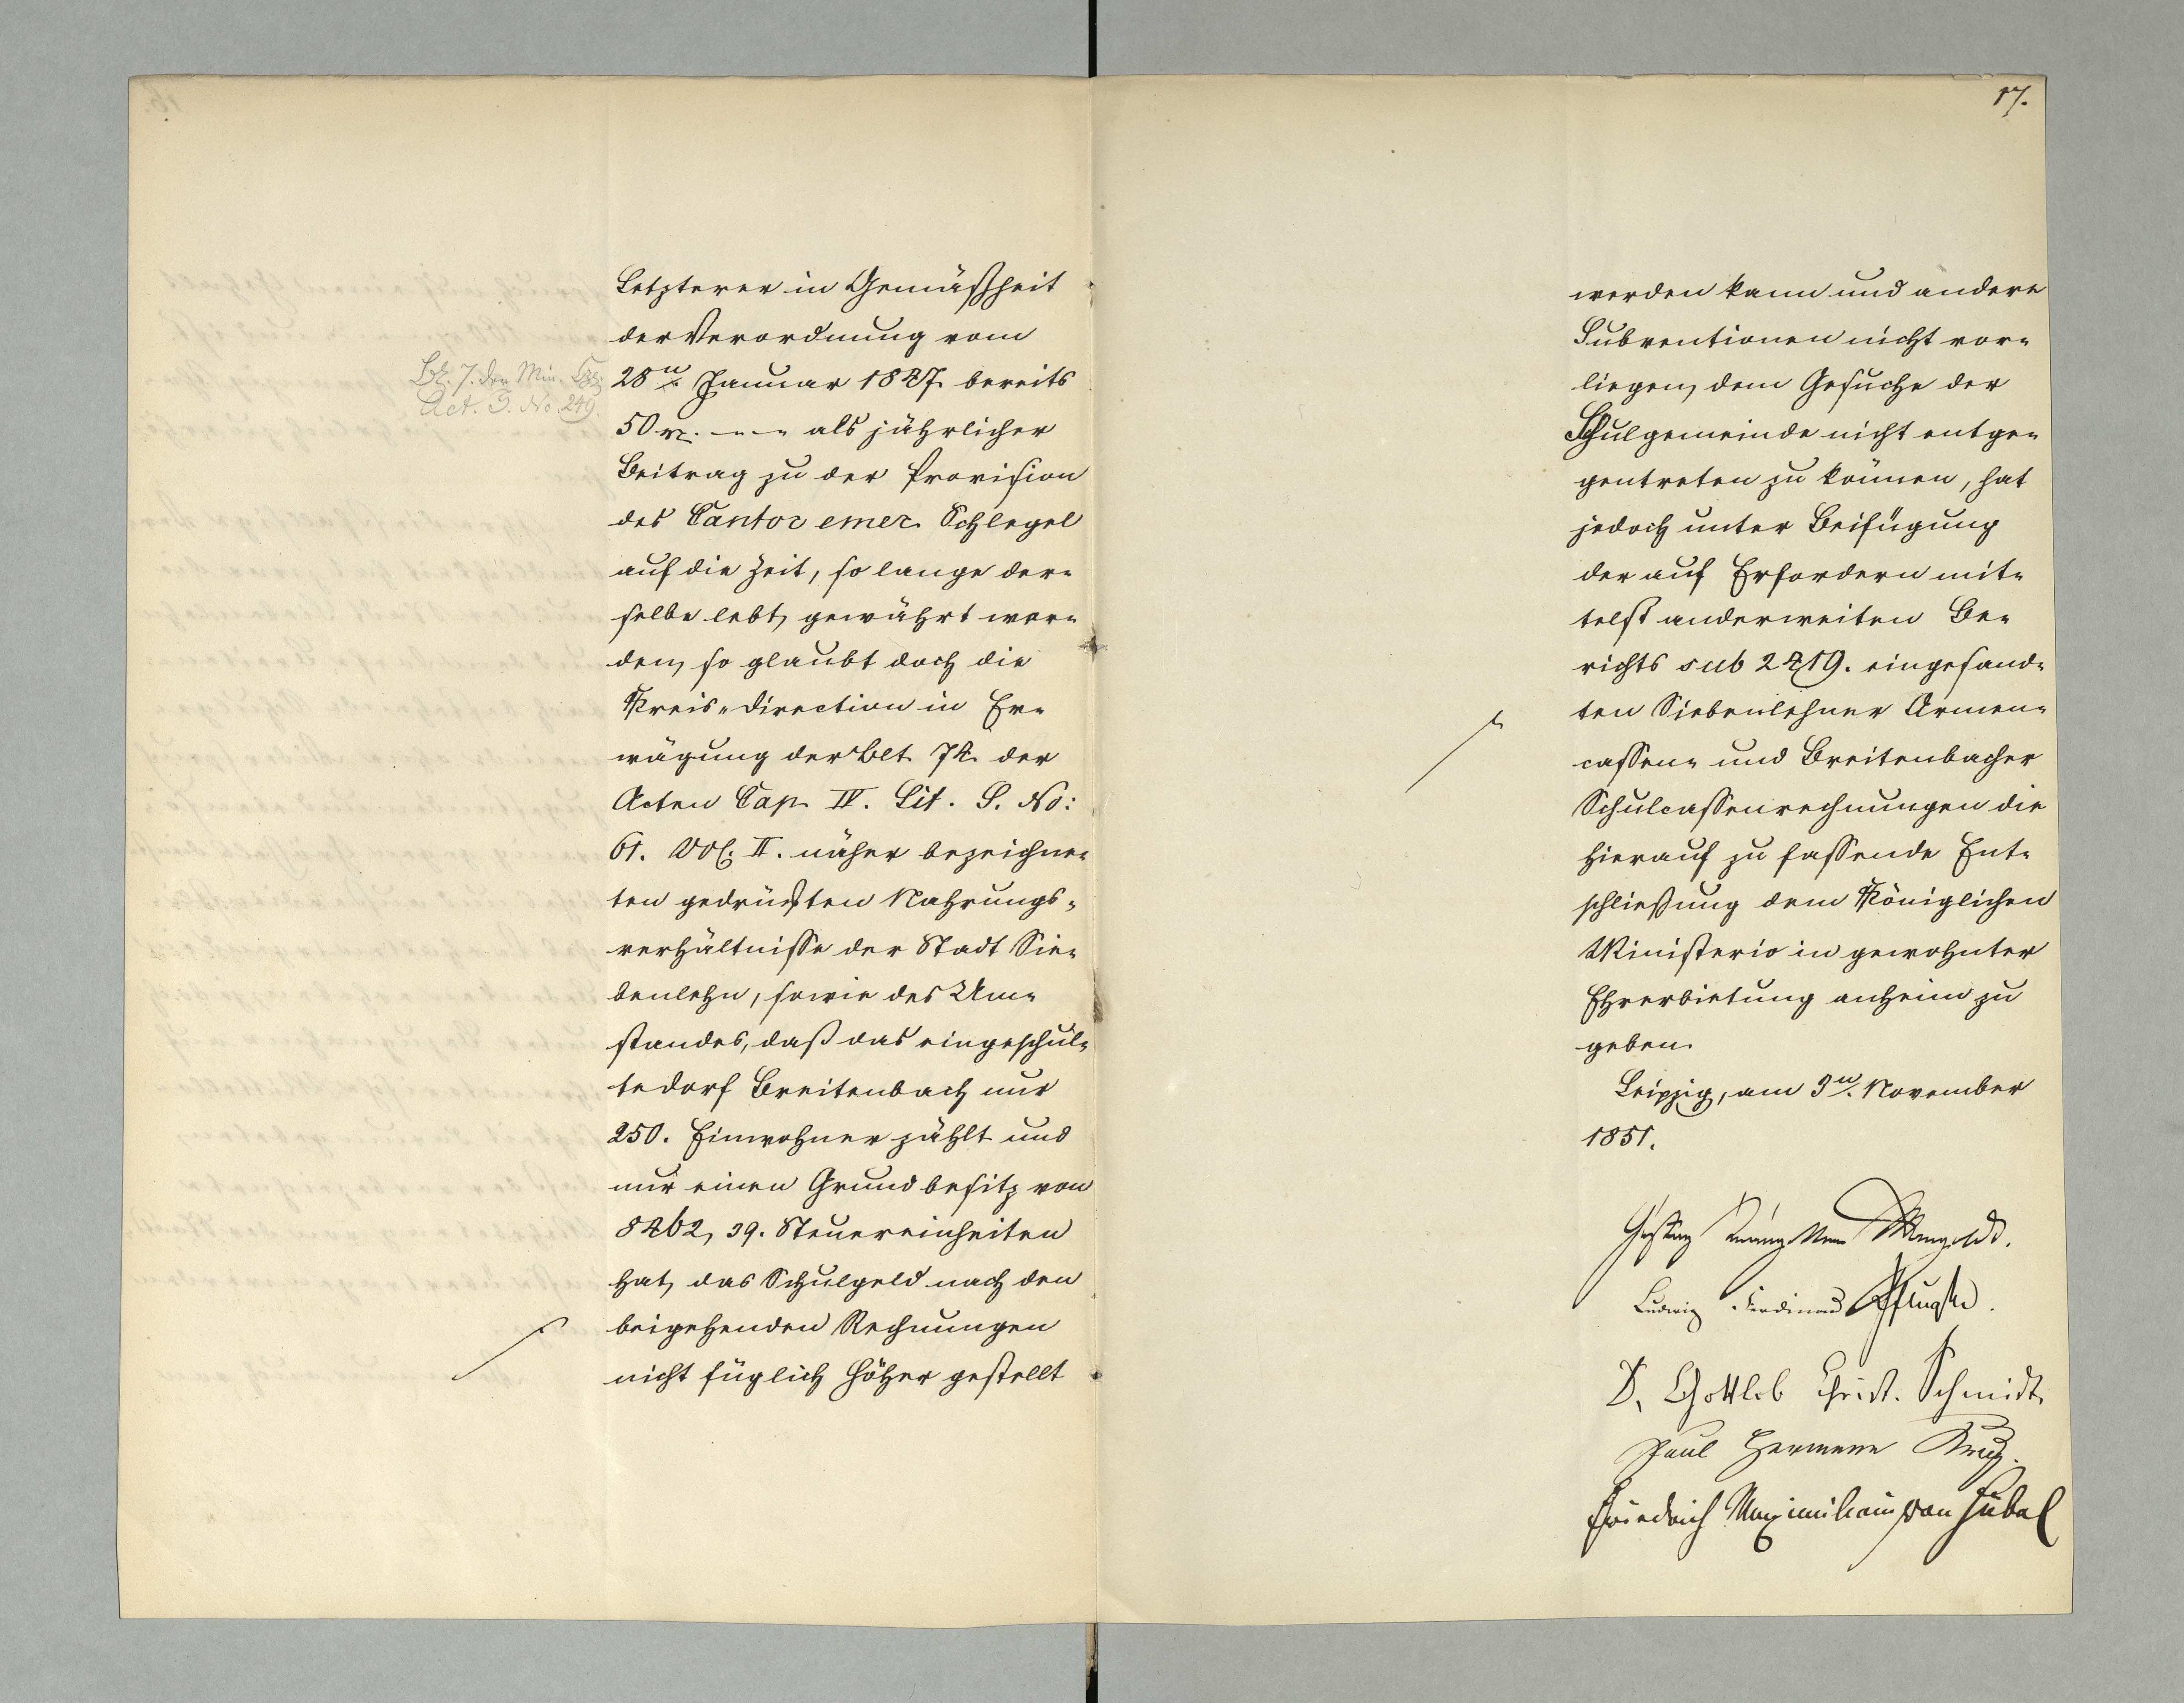 Letzterer in Gemäßheit
der Verordnung vom
28n. Januar 1847. bereits
50 rℓ. - - - als jährlicher
Beitrag zu der Provision
des Cantor emer. Schlegel
auf die Zeit, so lange der-
selbe lebt, gewährt wor-
den, so glaubt doch die
Kreis-Direction in Er-
wägung der Blt. 74. der
Acten Cap. IV. Lit. S. No:
61. Vol. II. näher bezeichne-
ten gedrückten Nahrungs-
verhältnisse der Stadt Sie-
benlehn, sowie des Um-
standes, daß das eingeschul-
te Dorf Breitenbach nur
250. Einwohner zählt und
nur einen Grundbesitz von
8462, 39. Steuereinheiten
hat, das Schulgeld nach den
beigehenden Rechnungen
nicht füglich höher gestellt
Bl. 7. der Min.
Act. S. No. 249.
17.
werden kann und andere
Subventionen nicht vor-
liegen, dem Gesuche der
Schulgemeinde nicht entge-
gentreten zu können, hat
jedoch unter Beifügung
der auf Erfordern mit-
telst anderweiten Be-
richts sub 2419. eingesand-
ten Siebenlehner Armen-
cassen- und Breitenbacher
Schulcassenrechnungen die
hierauf zu fassende Ent-
schließung dem Königlichen
Ministerio in gewohnter
Ehrerbietung anheim zu
geben.
Leipzig, am 3n. November
1851.
Ludwig Ferdinand
D. Gottlob Christ. Schmidt.
Paul Hermann
Friedrich Maximilian von Hübel